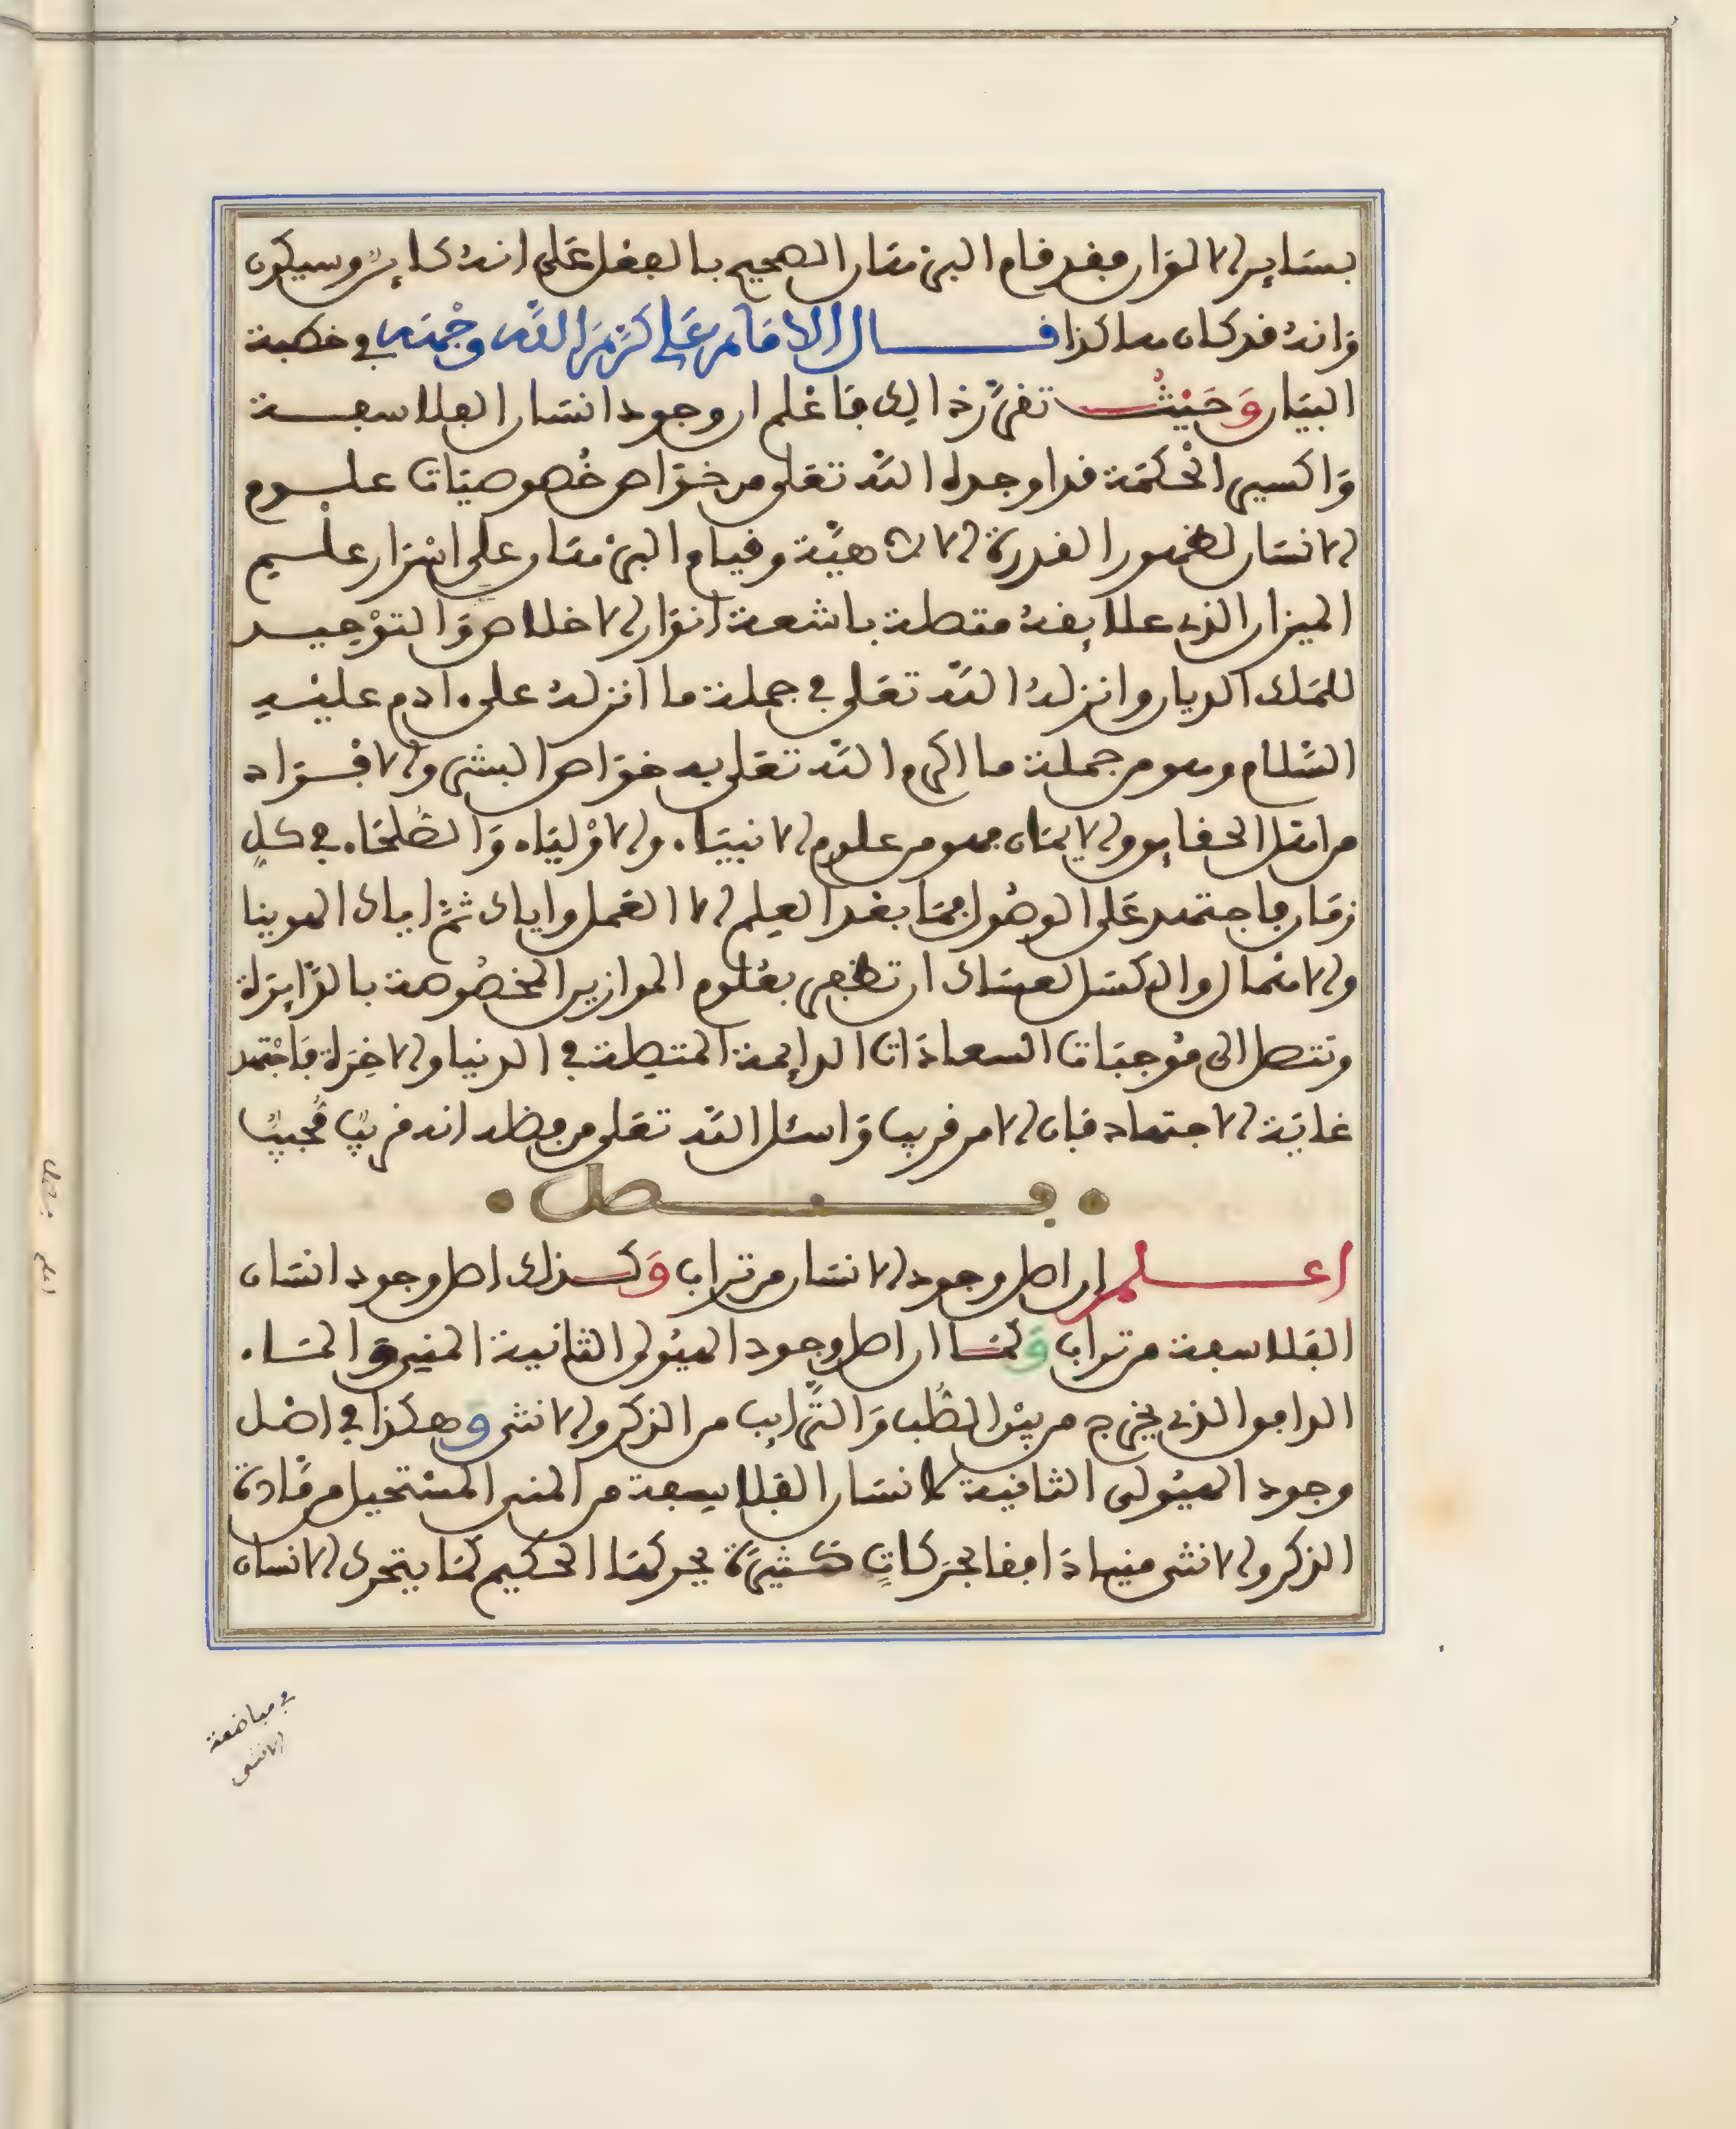 بسَاير الالوَان فقد قام البرهَان الصحيح بالفعل عَلى انهُ كاينٌ وسيكون
وَانهُ قد كان هاكذا قال الامَام عَلي كَرَّمَ اللَّه وَجْهَه في خطبة
البيَان وَحَيْثُ تقرَّرَ ذالك فَاعْلم ان وجود انسَان الفلاسفة
وَاكسير الحْكمَة قد اوجده اللَّه تعَلى من خوَاص خُصوصيَّات علوم
الانسَان لظهور القدرة الالاهيَّة وقيام البرهَان على اسْرَار علْم
الميزان الذي علايقهُ متصلة باشعة انوَار الاخلاص وَالتوْحيد
للمَلك الديان وانزلهُ اللَّه تعَلى في جملة ما انزلهُ على ءادم عليْهِ
السَّلام وهو من جملة ما اكرم اللَّه تعَلى به خوَاص البشر والافْرَاد
من اهَل الحقايق والايمَان فهو من علوم الانبيَاء والاوْليَاء وَالصُّلحَاء في كلِ
زمَان فاجتهد عَلى الوصُول فمَا بعْد العِلم الا العَمل واياك ثمَّ اياك الهوينا
والاهْمال والكسَل لعسَاك ان تظفر بعُلوم الموازين المخصُوصة بالزَّايرَة
وتتصل الى مُوجبَات السعادَات الدايمة المتصلة في الدنيا والاخِرَة فَاجْتهد
غايَة الاجتهاد فَان الامر قريب وَاسئل اللَّه تعَلى من فضله انه قريبٌ مُّجيبٌ
فصل
اعلم ان اصل وجود الانسَان من تراب وَكذلك اصل وجود انسَان
الفَلاسفة من تراب وَكمَا ان اصل وجود الهيُولى الثانية المني وَالمَاء
الدافق الذي يخرج من بيْن الصُّلب وَالتَّرايب من الذكر والانثى وَهكذا في اصْل
وجود الهيُولى الثانية لانسَان الفَلاسِفة من المني المسْتحيل من مَّادة
الذكر والانثى منيا دَافقا بحرَكاتٍ كثيرَة يحركهَا الحكيم كمَا يتحرك الانسان
في مباضعة
الانثى